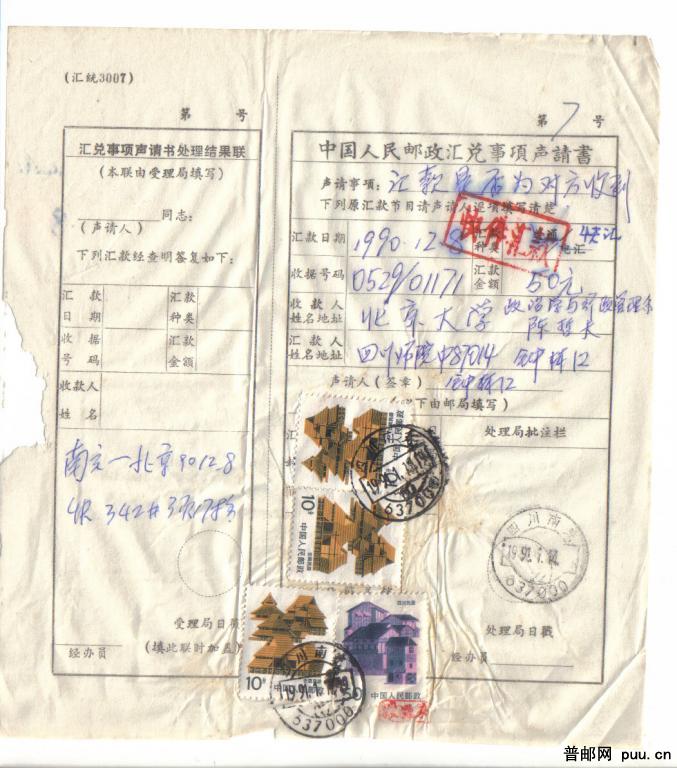 (汇统3007)
第 号
汇兑事项声请书处理结果联
(本联由受理局填写)
同志:
(声请人)
下列汇款经查明答复如下:
汇款日期
汇款种类
收据号码
汇款金额
收款人姓名
南充—北京 90128
受理局日戳
经办员 (填此联时加盖)
第 7 号
中国人民邮政汇兑事项声請書
声请事项: 汇款是否为对方收到
下列原汇款节目请声请人逐项填写清楚
汇款日期 1990.12.8 汇款种类 普通
收据号码 0529/01171 汇款金额 50元
收款人姓名地址 北京大学政治学与行政管理系
汇款人姓名地址 四川师院中87014
声请人(签章)
下由邮局填写)
处理局批注栏
10分
中国人民邮政
10分
中国人民邮政
10分
四川民居
50
中国人民邮政
四川南充
637000
四川南充
637000
四川南充
637000
处理局日戳
经办员
普邮网 puu.cn